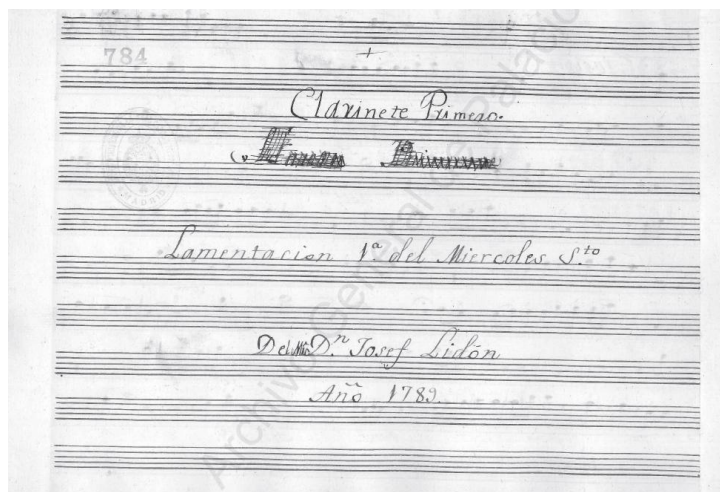 784
+
Clarinete Primero.
Lamentacion 1ª. del Miercoles S.to
Del D.n Josef Lidón
Año 1789.
Archivo General de Palacio